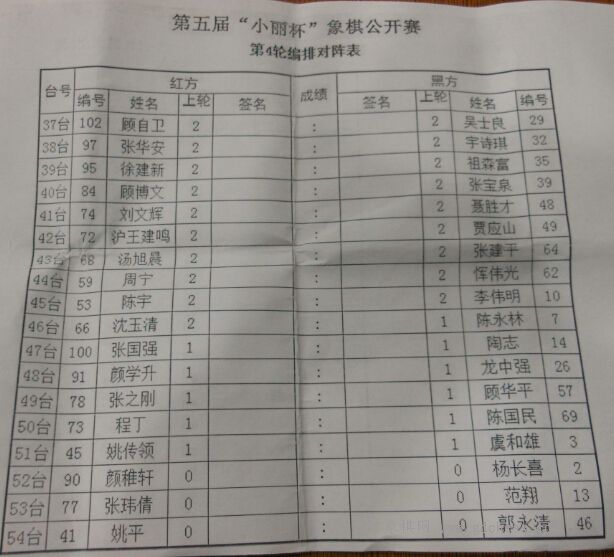 第五届“小丽杯”象棋公开赛
第4轮编排对阵表
台号 红方 成绩 黑方
编号 姓名 上轮 签名 签名 上轮 姓名 编号
37台 102 顾自卫 2 : 2 吴士良 29
38台 97 张华安 2 : 2 宇诗琪 32
39台 95 徐建新 2 : 2 祖森富 35
40台 84 顾博文 2 : 2 张宝泉 39
41台 74 刘文辉 2 : 2 聂胜才 48
42台 72 沪王建鸣 2 : 2 贾应山 49
43台 68 汤旭晨 2 : 2 张建平 64
44台 59 周宁 2 : 2 恽伟光 62
45台 53 陈宇 2 : 2 李伟明 10
46台 66 沈玉清 2 : 1 陈永林 7
47台 100 张国强 1 : 1 陶志 14
48台 91 颜学升 1 : 1 龙中强 26
49台 78 张之刚 1 : 1 顾华平 57
50台 73 程丁 1 : 1 陈国民 69
51台 45 姚传领 1 : 1 虞和雄 3
52台 90 颜稚轩 0 : 0 杨长喜 2
53台 77 张玮倩 0 : 0 范翔 13
54台 41 姚平 0 : 0 郭永清 46